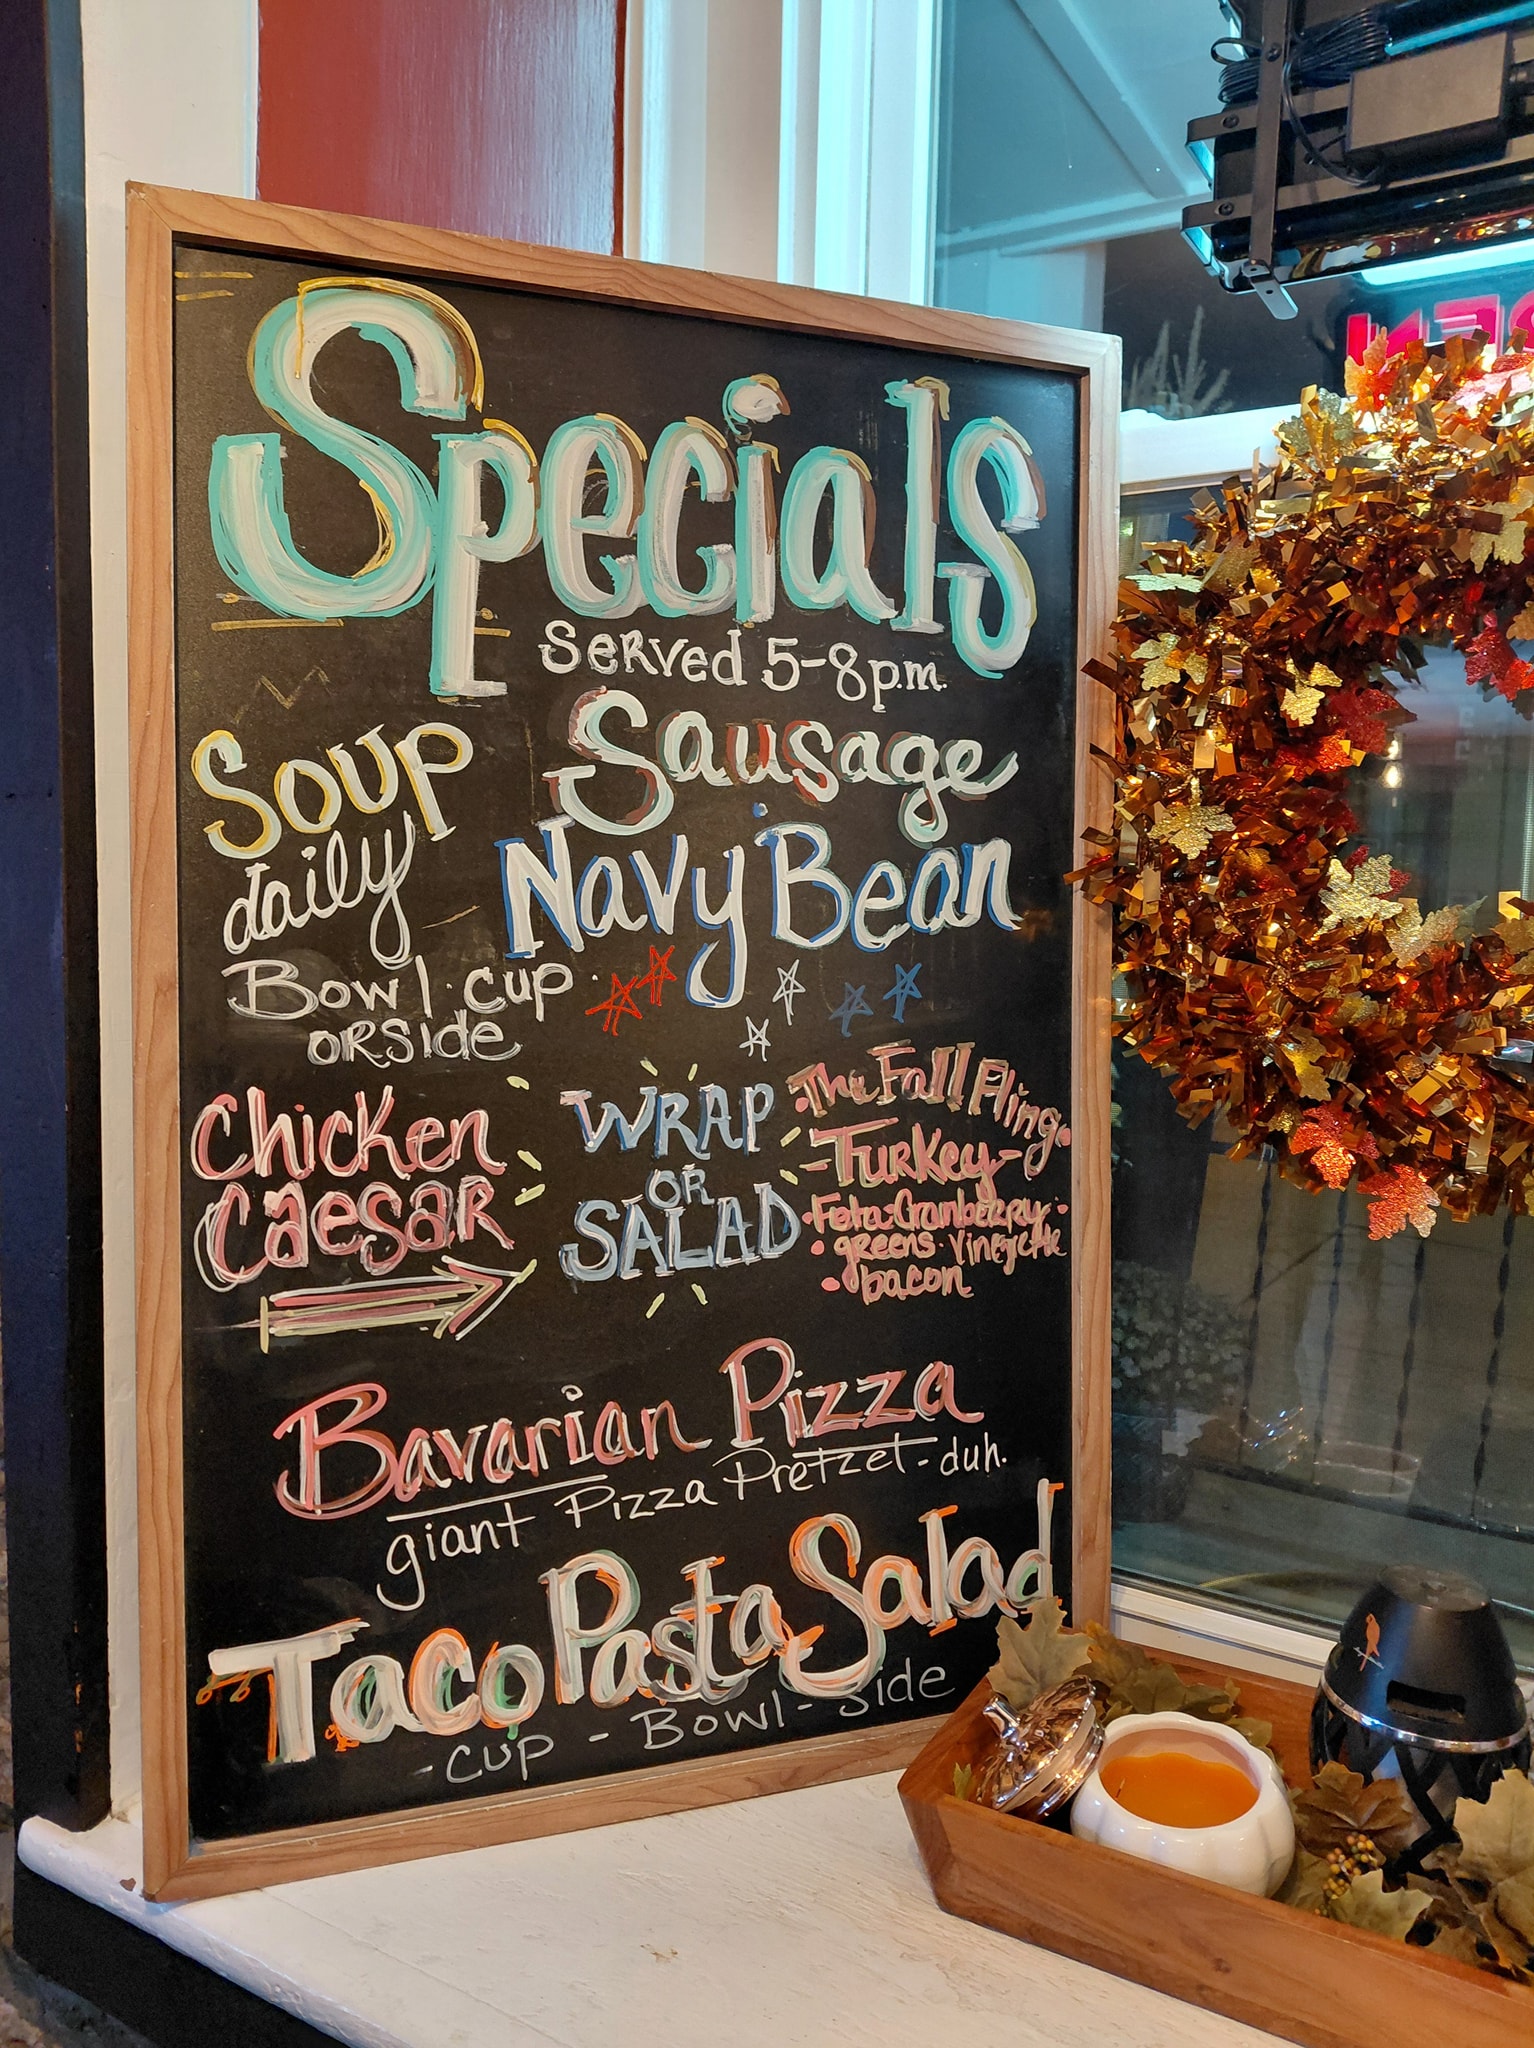 Specials
Served 5-8p.m.
Soup
daily
Bowl · cup
or side
Sausage
Navy Bean
Chicken
Caesar
WRAP
OR
SALAD
The Fall Fling
-Turkey-
• Feta · Cranberry •
• greens · Vinegrette
• bacon
Bavarian Pizza
giant Pizza Pretzel - duh.
Taco Pasta Salad
- Cup - Bowl - Side